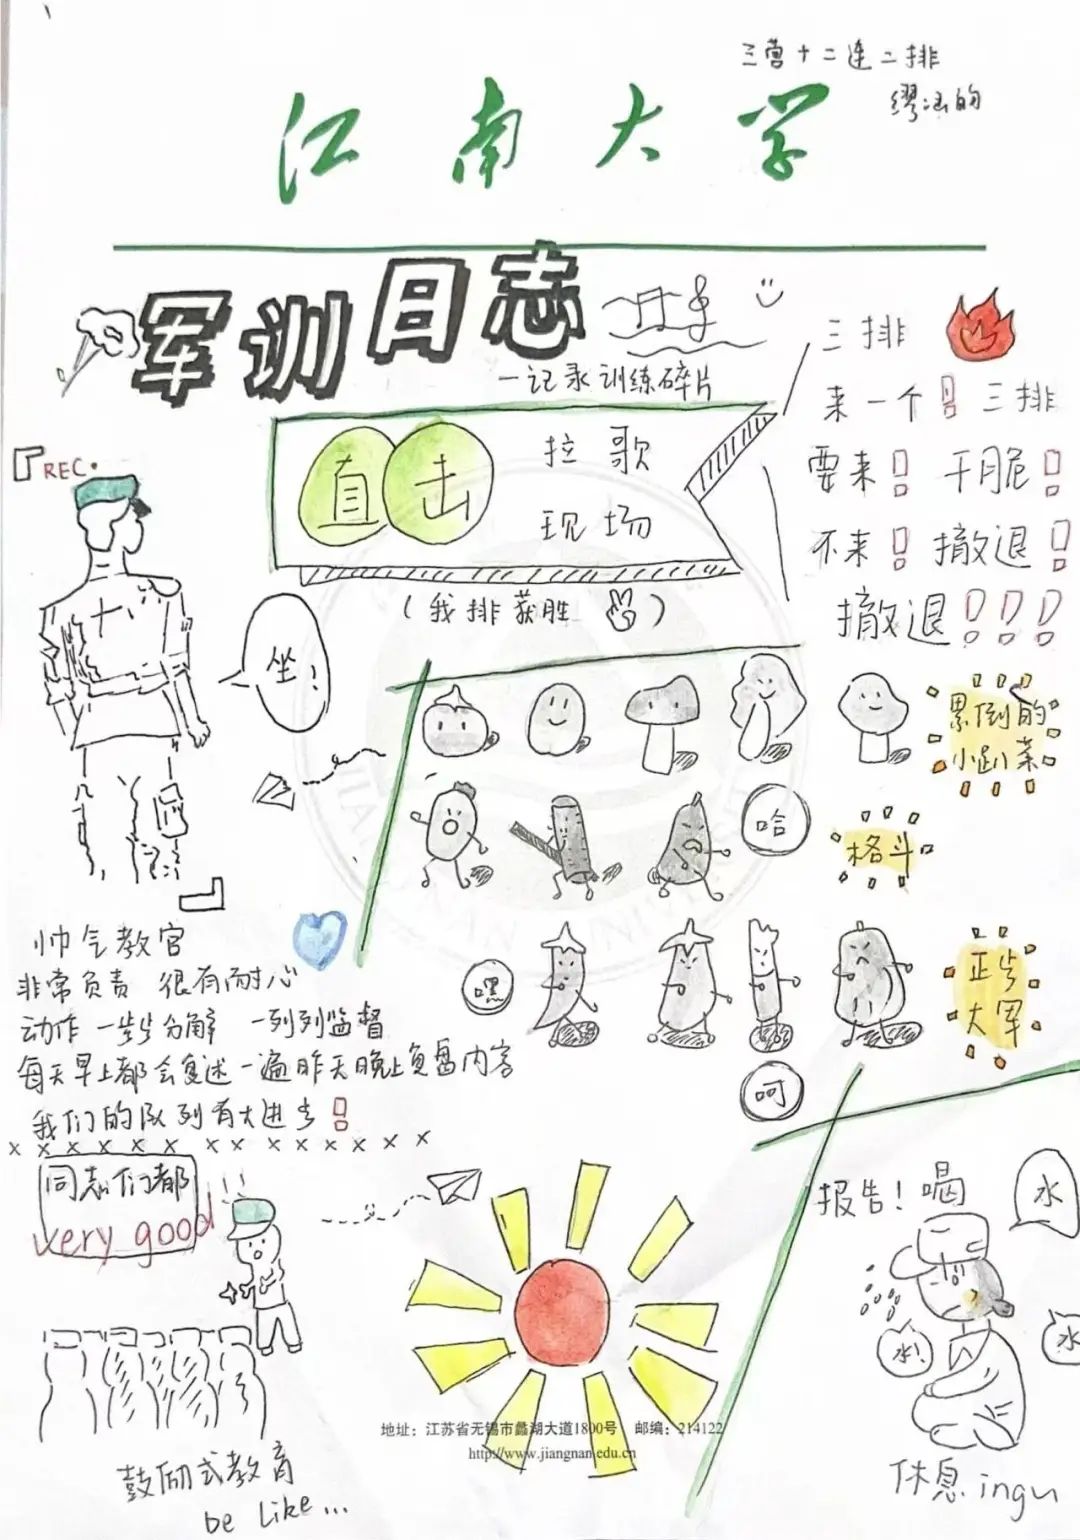 三营十二连二排
缪涵的
江南大学
军训日志
一记录训练碎片
REC.
直击
拉歌
现场
(我排获胜)
三排
来一个!三排
要来!干脆!
不来!撤退!
撤退!!!
坐!
累倒的
小趴菜
哈
格斗
嘿
正步
大军
呵
帅气教官
非常负责 很有耐心
动作一步步分解 一列列监督
每天早上都会复述一遍昨天晚上负盘内容
我们的队列有大进步!
同志们都
very good!!!
鼓励式教育
be like...
报告!喝
水
水!
水
休息ingn
地址:江苏省无锡市蠡湖大道1800号 邮编:214122
http://www.jiangnan.edu.cn